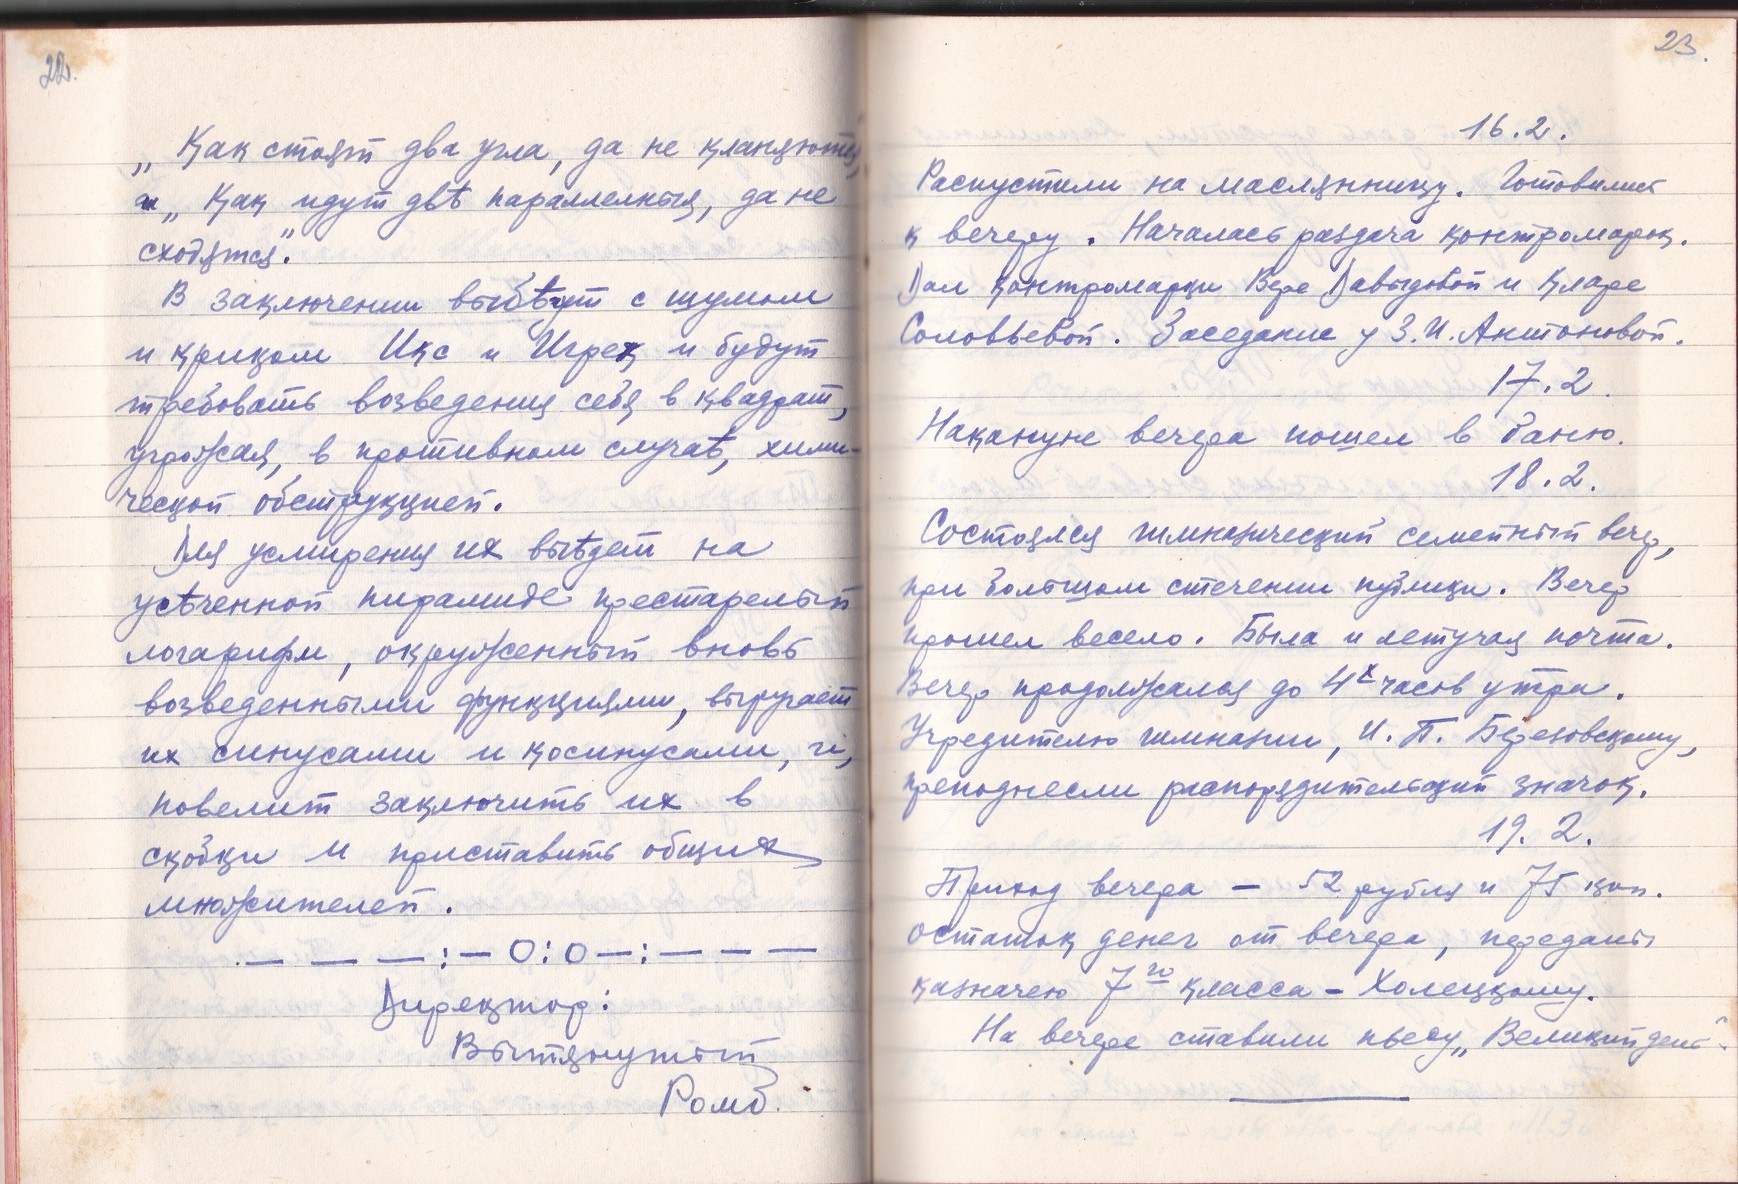 22.
„Как стоят два угла, да не кланяются,
и „Как идут двѣ параллельныя, да не
сходятся".
В заключении выбѣгут с шумом
и криком Икс и Игрек и будут
требовать возведения себя в квадрат,
угрожая, в противном случаѣ, хими-
ческой обструкцией.
Для усмирения их выѣдет на
усѣченной пирамиде престарелый
логарифм, окруженный вновь
возведенными функциями, выругает
их синусами и косинусами, и,
повелит заключить их в
скобки и приставить общих
множителей.
— — — : — О : О — : — — —
Директор:
Вытянутый
Ромб.
23.
16.2.
Распустили на маслянницу. Готовились
к вечеру. Началась раздача контромарок.
Дал контромарки Вере Давыдовой и Кларе
Соловьевой. Заседание у З. И. Антоновой.
17.2.
Накануне вечера пошел в баню.
18.2.
Состоялся гимназический семейный вечер,
при большом стечении публики. Вечер
прошел весело. Была и летучая почта.
Вечер продолжался до 4х часов утра.
Учредителю гимназии, И. П. Березовскому,
преподнесли распорядительский значок.
19.2.
Приход вечера — 52 рубля и 75 коп.
остаток денег от вечера, переданы
казначею 7го класса – Холецкому.
На вечере ставили пьесу „Великий день".